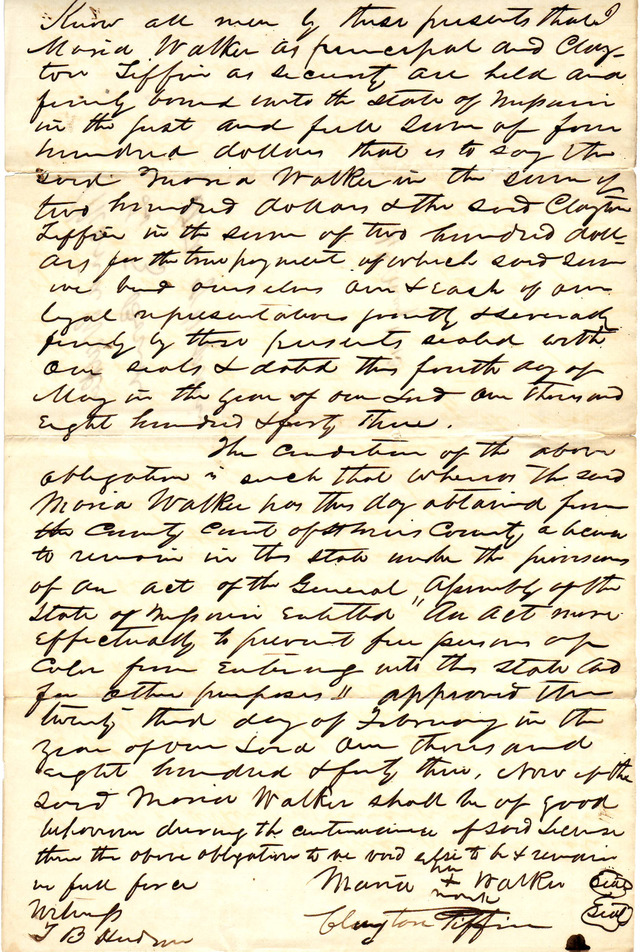 Know all men by these presents that I
Maria Walker as principal and Clay-
ton Tiffin as security are held and
firmly bound unto the State of Missouri
in the just and full sum of four
hundred dollars that is to say the
said Maria Walker in the sum of
two hundred dollars & the said Clayton
Tiffin in the sum of two hundred doll-
ars for the true payment of which said sum
we bind ourselves our & each of our
legal representatives jointly & severally
firmly by these presents sealed with
our seals & dated this fourth day of
May in the year of our Lord one thousand
eight hundred & forty three.
The condition of the above
obligation is such that whereas the said
Maria Walker has this day obtained from
the County Court of St Louis County a license
to remain in this state under the provisions
of an act of the General Assembly of the
State of Missouri Entitled "An Act more
effectually to prevent free persons of
Color from entering into this state and
for other purposes" approved the
twenty third day of February in the
year of our Lord one thousand
eight hundred & forty three, Now if the
said Maria Walker shall be of good
behavior during the continuance of said License
then the above obligation to be void else to be & remain
in full force
her
Maria + Walker Seal
mark
Witness
T B Hudson
Clayton Tiffin Seal